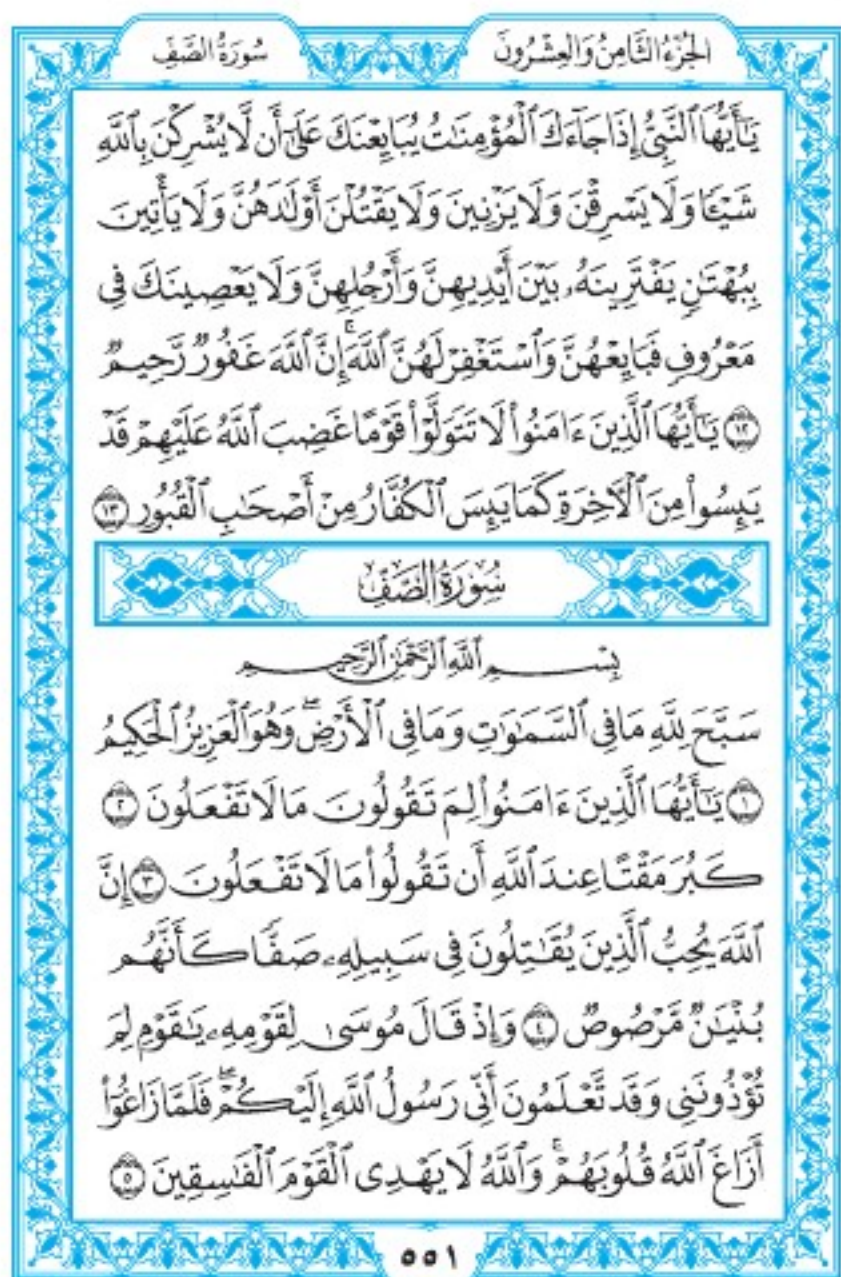 الجُزْءُ الثَّامِنُ وَالعِشْرُونَ
سُورَةُ الصَّفِّ
يَٰٓأَيُّهَا ٱلنَّبِيُّ إِذَا جَآءَكَ ٱلْمُؤْمِنَٰتُ يُبَايِعْنَكَ عَلَىٰٓ أَن لَّا يُشْرِكْنَ بِٱللَّهِ
شَيْـًٔا وَلَا يَسْرِقْنَ وَلَا يَزْنِينَ وَلَا يَقْتُلْنَ أَوْلَٰدَهُنَّ وَلَا يَأْتِينَ
بِبُهْتَٰنٍ يَفْتَرِينَهُۥ بَيْنَ أَيْدِيهِنَّ وَأَرْجُلِهِنَّ وَلَا يَعْصِينَكَ فِى
مَعْرُوفٍ فَبَايِعْهُنَّ وَٱسْتَغْفِرْ لَهُنَّ ٱللَّهَ ۚ إِنَّ ٱللَّهَ غَفُورٌ رَّحِيمٌ
١٢ يَٰٓأَيُّهَا ٱلَّذِينَ ءَامَنُوا۟ لَا تَتَوَلَّوْا۟ قَوْمًا غَضِبَ ٱللَّهُ عَلَيْهِمْ قَدْ
يَئِسُوا۟ مِنَ ٱلْءَاخِرَةِ كَمَا يَئِسَ ٱلْكُفَّارُ مِنْ أَصْحَٰبِ ٱلْقُبُورِ ١٣
سُورَةُ الصَّفِّ
بِسْمِ ٱللَّهِ ٱلرَّحْمَٰنِ ٱلرَّحِيمِ
سَبَّحَ لِلَّهِ مَا فِى ٱلسَّمَٰوَٰتِ وَمَا فِى ٱلْأَرْضِ ۖ وَهُوَ ٱلْعَزِيزُ ٱلْحَكِيمُ
١ يَٰٓأَيُّهَا ٱلَّذِينَ ءَامَنُوا۟ لِمَ تَقُولُونَ مَا لَا تَفْعَلُونَ ٢
كَبُرَ مَقْتًا عِندَ ٱللَّهِ أَن تَقُولُوا۟ مَا لَا تَفْعَلُونَ ٣ إِنَّ
ٱللَّهَ يُحِبُّ ٱلَّذِينَ يُقَٰتِلُونَ فِى سَبِيلِهِۦ صَفًّا كَأَنَّهُم
بُنْيَٰنٌ مَّرْصُوصٌ ٤ وَإِذْ قَالَ مُوسَىٰ لِقَوْمِهِۦ يَٰقَوْمِ لِمَ
تُؤْذُونَنِى وَقَد تَّعْلَمُونَ أَنِّى رَسُولُ ٱللَّهِ إِلَيْكُمْ ۖ فَلَمَّا زَاغُوٓا۟
أَزَاغَ ٱللَّهُ قُلُوبَهُمْ ۚ وَٱللَّهُ لَا يَهْدِى ٱلْقَوْمَ ٱلْفَٰسِقِينَ ٥
٥٥١